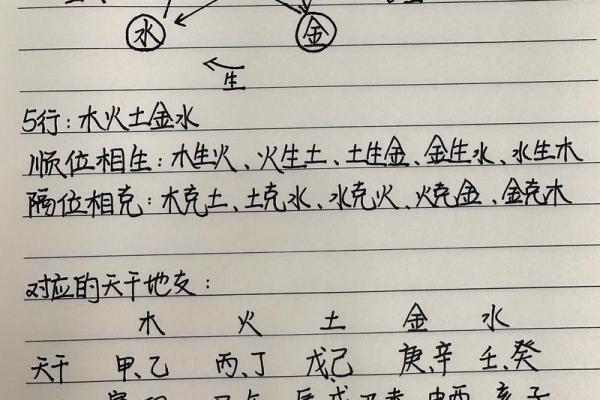 水 金
生
5行:木火土金水
顺位相生:木生火、火生土、土生金、金生水、水生木
隔位相克:木克土、土克水、水克火、火克金、金克木
对应的天干地支:
木 火 土 金 水
天干 甲、乙 丙、丁 戊、己 庚、辛 壬、癸